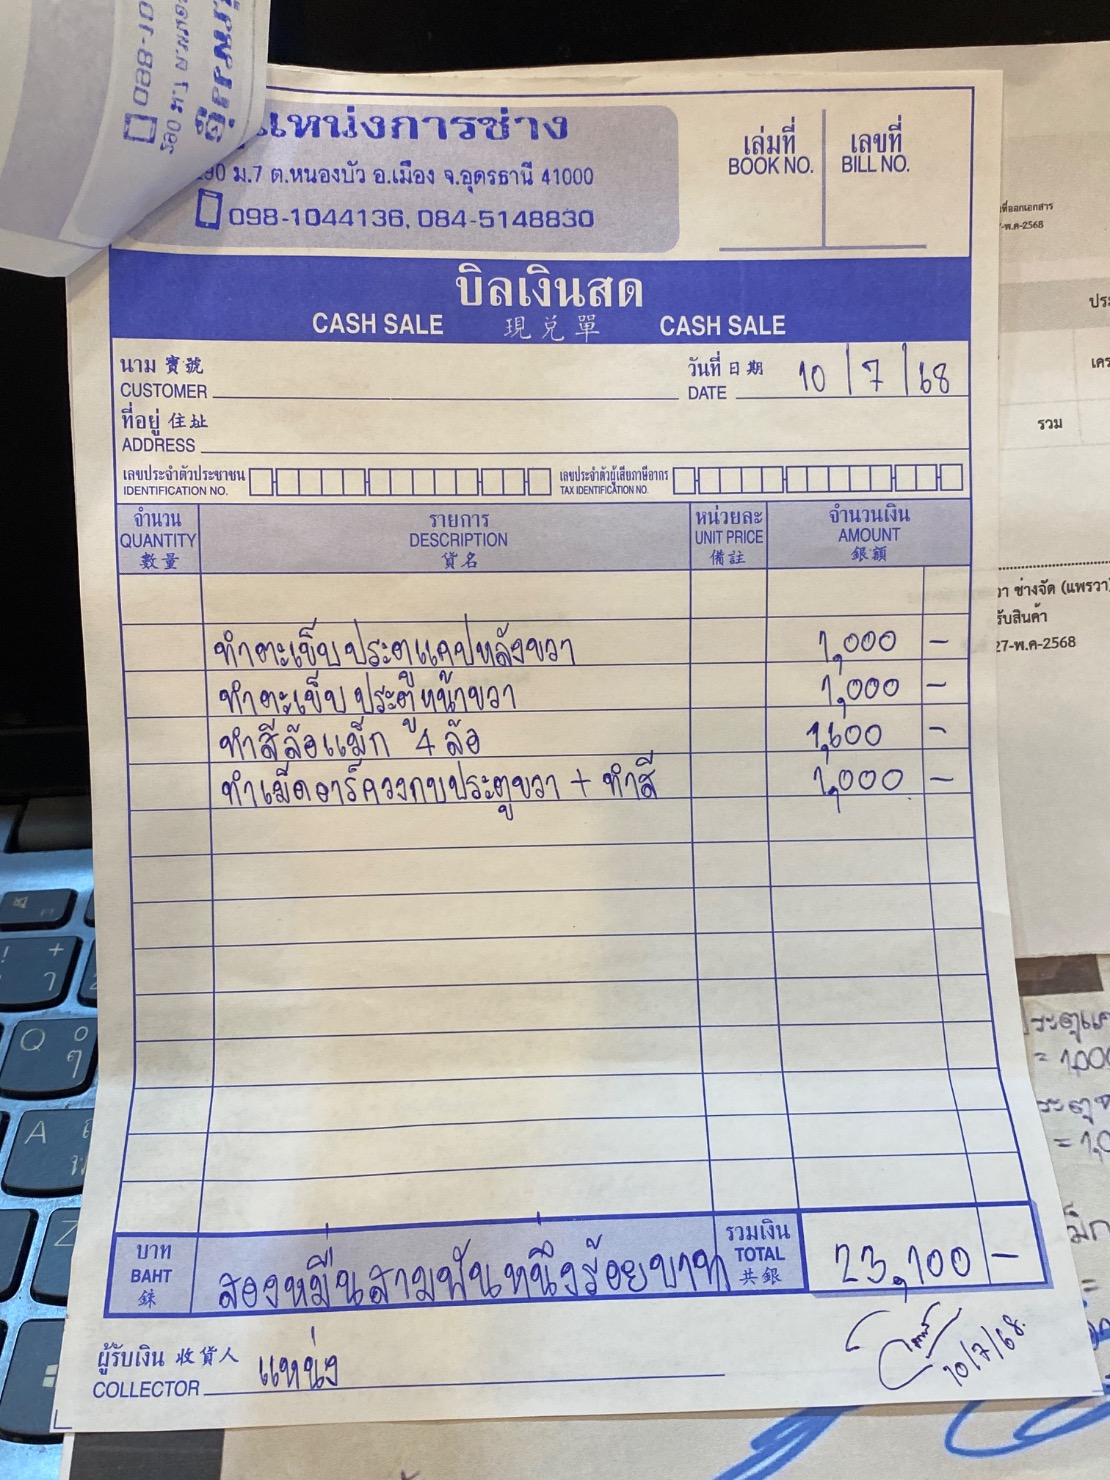 แหน่งการช่าง
ม.7 ต.หนองบัว อ.เมือง จ.อุดรธานี 41000
098-1044136, 084-5148830
เล่มที่ เลขที่
BOOK NO. BILL NO.
บิลเงินสด
CASH SALE 現兌單 CASH SALE
นาม 寶號
CUSTOMER
วันที่ 日期
DATE 10/7/68
ที่อยู่ 住址
ADDRESS
เลขประจำตัวประชาชน
IDENTIFICATION NO.
เลขประจำตัวผู้เสียภาษีอากร
TAX IDENTIFICATION NO.
จำนวน รายการ หน่วยละ จำนวนเงิน
QUANTITY DESCRIPTION UNIT PRICE AMOUNT
數量 貨名 備註 銀額
ทำตะเข็บประตูแคปหลังขวา 1,000 -
ทำตะเข็บ ประตูหน้าขวา 1,000 -
ทำสีล้อแม็ก 4 ล้อ 1,600 -
ทำเม็ดอาร์ควงกบประตูขวา + ทำสี 1,000 -
บาท
BAHT
銖
สองหมื่นสามพันหนึ่งร้อยบาท
รวมเงิน
TOTAL
共銀
23,100 -
ผู้รับเงิน 收貨人
COLLECTOR แหน่ง
10/7/68.
ที่ออกเอกสาร
-พ.ค-2568
รวม
ช่างจัด (แพรวา)
รับสินค้า
27-พ.ค-2568
Q
A
Z